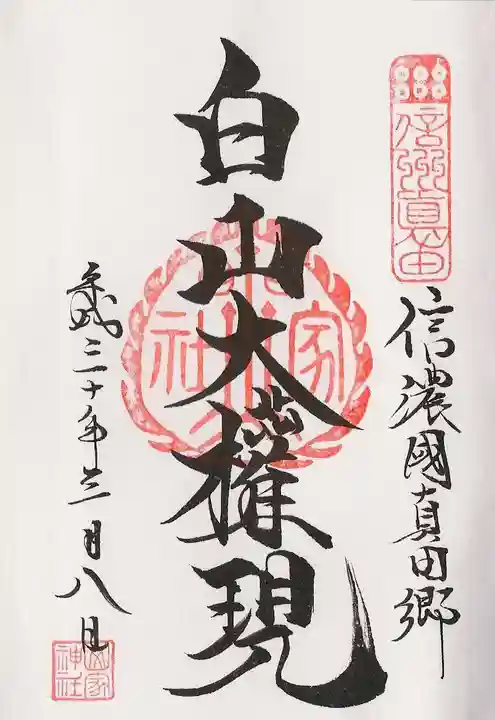 信州真田
信濃國真田郷
白山大權現
平成三十年三月八日
山家神社
山家神社